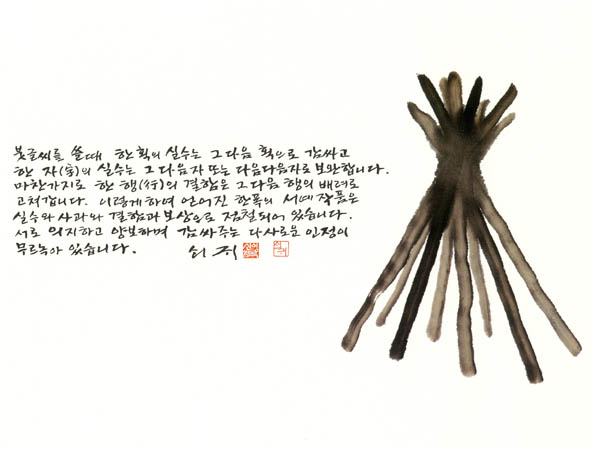 붓글씨를 쓸 때 한 획의 실수는 그 다음 획으로 감싸고
한 자(字)의 실수는 그 다음 자 또는 다음다음 자로 보완합니다.
마찬가지로 한 행(行)의 결함은 그 다음 행의 배려로
고쳐갑니다. 이렇게 하여 얻어진 한 폭의 서예 작품은
실수와 사과와 결함과 보상으로 점철되어 있습니다.
서로 의지하고 양보하며 감싸주는 다사로운 인정이
무르녹아 있습니다.